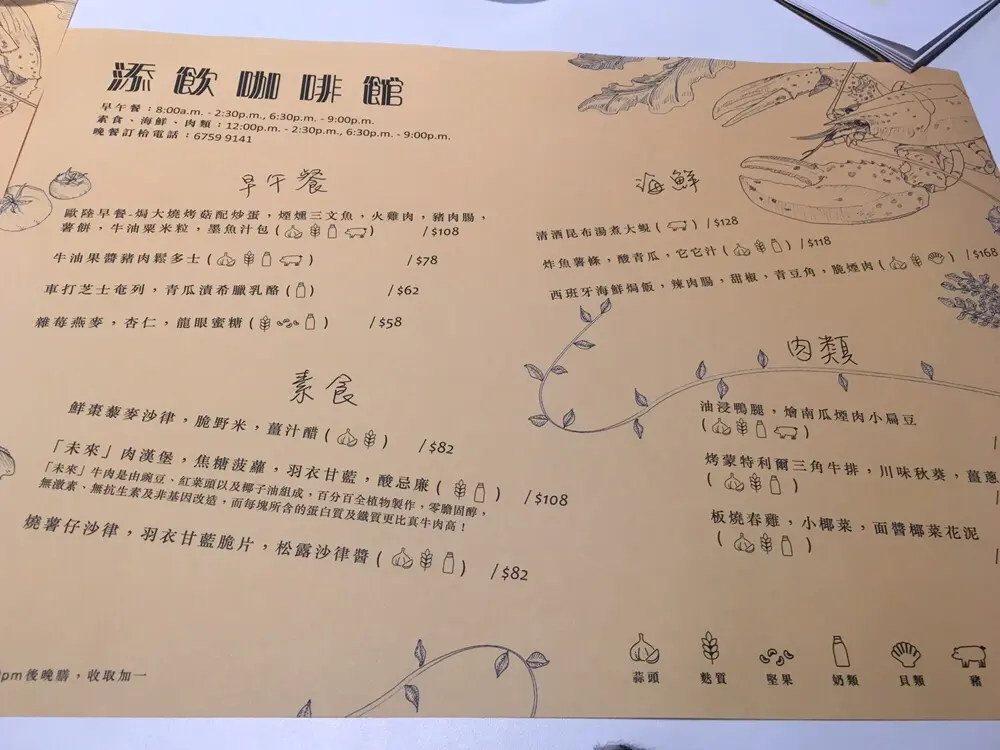 添飲咖啡館
早午餐：8:00a.m. - 2:30p.m., 6:30p.m. - 9:00p.m.
素食、海鮮、肉類：12:00p.m. - 2:30p.m., 6:30p.m. - 9:00p.m.
晚餐訂枱電話：6759 9141
早午餐
歐陸早餐-焗大燒烤菇配炒蛋，煙燻三文魚，火雞肉，豬肉腸，
薯餅，牛油粟米粒，墨魚汁包 ( ) /$108
牛油果醬豬肉鬆多士 ( ) /$78
車打芝士奄列，青瓜漬希臘乳酪 ( ) /$62
雜莓燕麥，杏仁，龍眼蜜糖 ( ) /$58
素食
鮮棗藜麥沙律，脆野米，薑汁醋 ( ) /$82
「未來」肉漢堡，焦糖菠蘿，羽衣甘藍，酸忌廉 ( ) /$108
「未來」牛肉是由豌豆、紅菜頭以及椰子油組成，百分百全植物製作，零膽固醇，
無激素、無抗生素及非基因改造，而每塊所含的蛋白質及鐵質更比真牛肉高！
燒薯仔沙律，羽衣甘藍脆片，松露沙律醬 ( ) /$82
pm後晚膳，收取加一
海鮮
清酒昆布湯煮大蜆 ( ) /$128
炸魚薯條，酸青瓜，它它汁 ( ) /$118
西班牙海鮮焗飯，辣肉腸，甜椒，青豆角，脆煙肉 ( ) /$168
肉類
油浸鴨腿，燴南瓜煙肉小扁豆
( )
烤蒙特利爾三角牛排，川味秋葵，薑蔥
( )
板燒春雞，小椰菜，面醬椰菜花泥
( )
蒜頭 麩質 堅果 奶類 貝類 豬